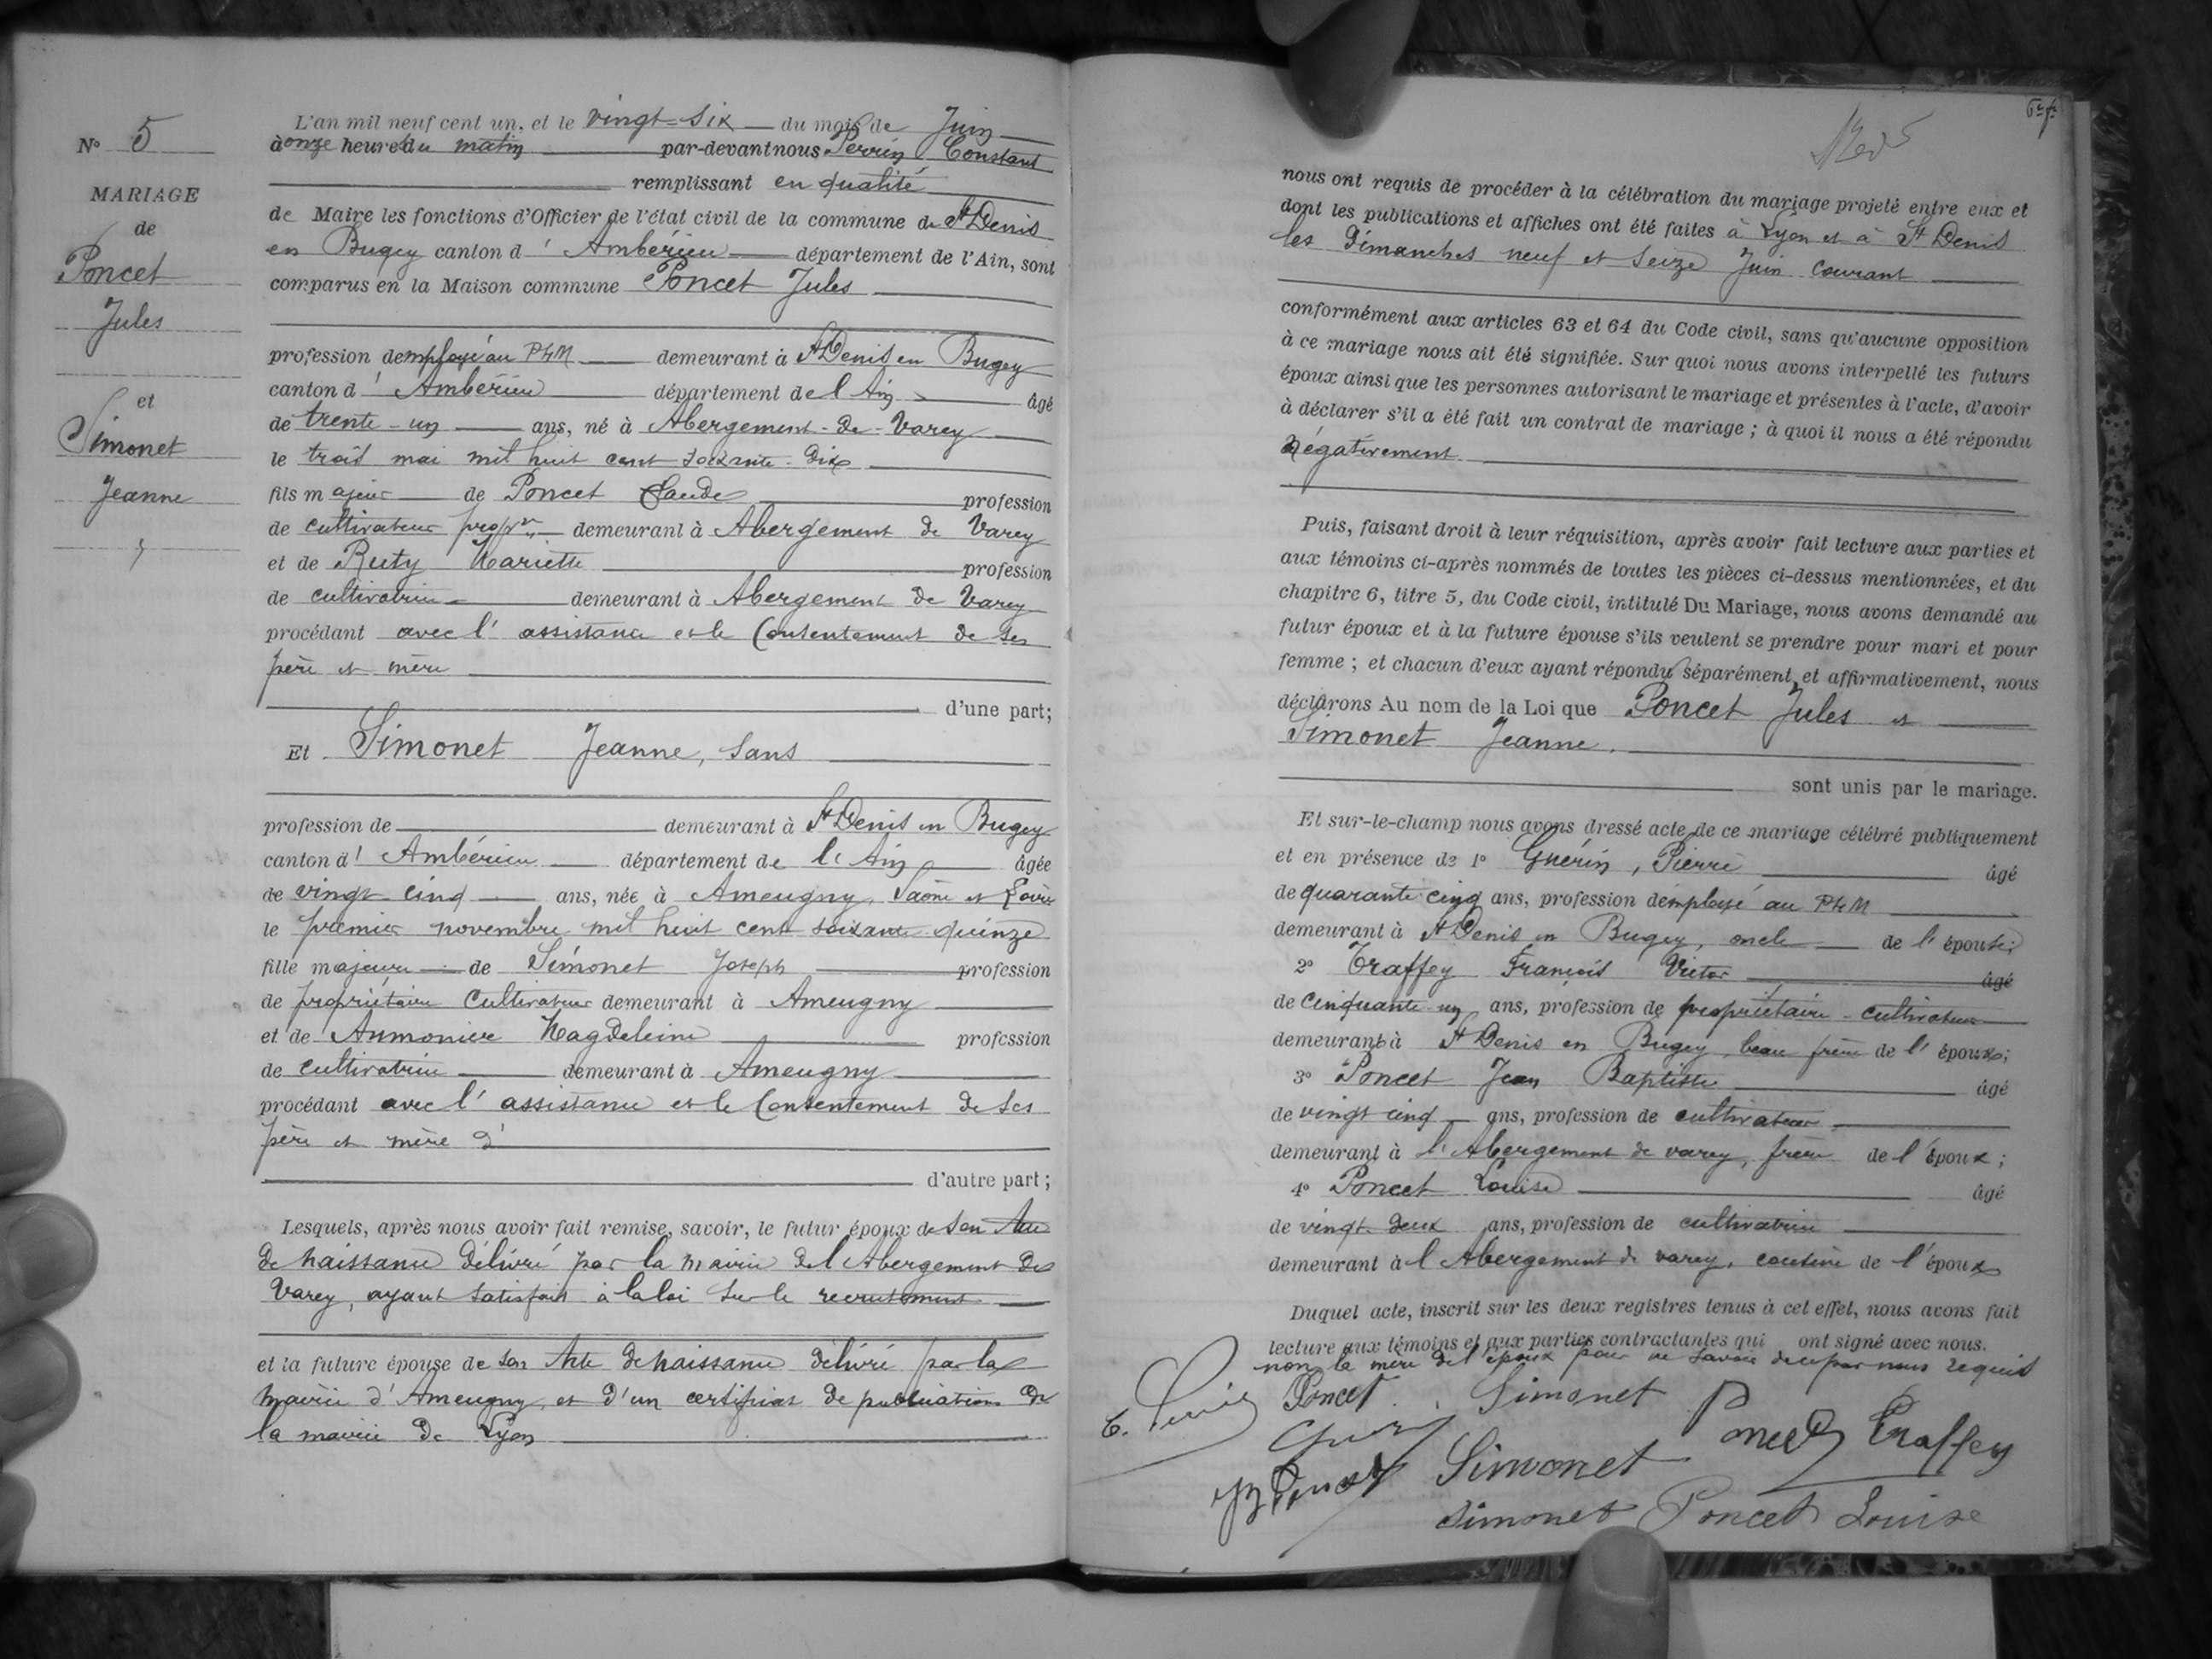 N° 5
MARIAGE
de
Poncet
Jules
et
Simonet
Jeanne
L'an mil neuf cent un, et le vingt-six du mois de Juin
à onze heure du matin par-devant nous Perrin Constant
remplissant en qualité
de Maire les fonctions d'Officier de l'état civil de la commune de St Denis
en Bugey canton d'Ambérieu département de l'Ain, sont
comparus en la Maison commune Poncet Jules
profession d'employé au PLM demeurant à St Denis en Bugey
canton d'Ambérieu département de l'Ain âgé
de trente-un ans, né à Abergement-de-Varey
le trois mai mil huit cent soixante-dix
fils majeur de Poncet Claude profession
de cultivateur propre demeurant à Abergement de Varey
et de Ruty Mariette profession
de cultivatrice demeurant à Abergement de Varey
procédant avec l'assistance et le Consentement de ses
père et mère
d'une part;
Et Simonet Jeanne, sans
profession de demeurant à St Denis en Bugey
canton d'Ambérieu département de l'Ain âgée
de vingt cinq ans, née à Ameugny, Saône et Loire
le premier novembre mil huit cent soixante quinze
fille majeure de Simonet Joseph profession
de propriétaire Cultivateur demeurant à Ameugny
et de Aumonier Magdeleine profession
de cultivatrice demeurant à Ameugny
procédant avec l'assistance et le Consentement de ses
père et mère
d'autre part;
Lesquels, après nous avoir fait remise, savoir, le futur époux de son Acte
de naissance délivré par la mairie de l'Abergement de
Varey, ayant satisfait à la loi sur le recrutement
et la future épouse de son Acte de naissance délivré par la
mairie d'Ameugny, et d'un certificat de publication de
la mairie de Lyon
nous ont requis de procéder à la célébration du mariage projeté entre eux et
dont les publications et affiches ont été faites à Lyon et à St Denis
les Dimanches neuf et seize Juin courant
conformément aux articles 63 et 64 du Code civil, sans qu'aucune opposition
à ce mariage nous ait été signifiée. Sur quoi nous avons interpellé les futurs
époux ainsi que les personnes autorisant le mariage et présentes à l'acte, d'avoir
à déclarer s'il a été fait un contrat de mariage; à quoi il nous a été répondu
négativement
Puis, faisant droit à leur réquisition, après avoir fait lecture aux parties et
aux témoins ci-après nommés de toutes les pièces ci-dessus mentionnées, et du
chapitre 6, titre 5, du Code civil, intitulé Du Mariage, nous avons demandé au
futur époux et à la future épouse s'ils veulent se prendre pour mari et pour
femme; et chacun d'eux ayant répondu séparément et affirmativement, nous
déclarons Au nom de la Loi que Poncet Jules et
Simonet Jeanne.
sont unis par le mariage.
Et sur-le-champ nous avons dressé acte de ce mariage célébré publiquement
et en présence de 1° Guérin, Pierre âgé
de quarante cinq ans, profession d'employé au PLM
demeurant à St Denis en Bugey, oncle de l'épouse;
2° Traffey François Victor âgé
de cinquante un ans, profession de propriétaire-cultivateur
demeurant à St Denis en Bugey, beau frère de l'époux;
3° Poncet Jean Baptiste âgé
de vingt cinq ans, profession de cultivateur
demeurant à l'Abergement de varey, frère de l'époux;
4° Poncet Louise âgé
de vingt-deux ans, profession de cultivatrice
demeurant à l'Abergement de varey, cousine de l'époux
Duquel acte, inscrit sur les deux registres tenus à cet effet, nous avons fait
lecture aux témoins et aux parties contractantes qui ont signé avec nous.
non la mère de l'époux pour ne savoir de ce par nous requis
C. Perrin Poncet Simonet
Poncet Traffey
JB Poncet Simonet
Simonet Poncet Louise